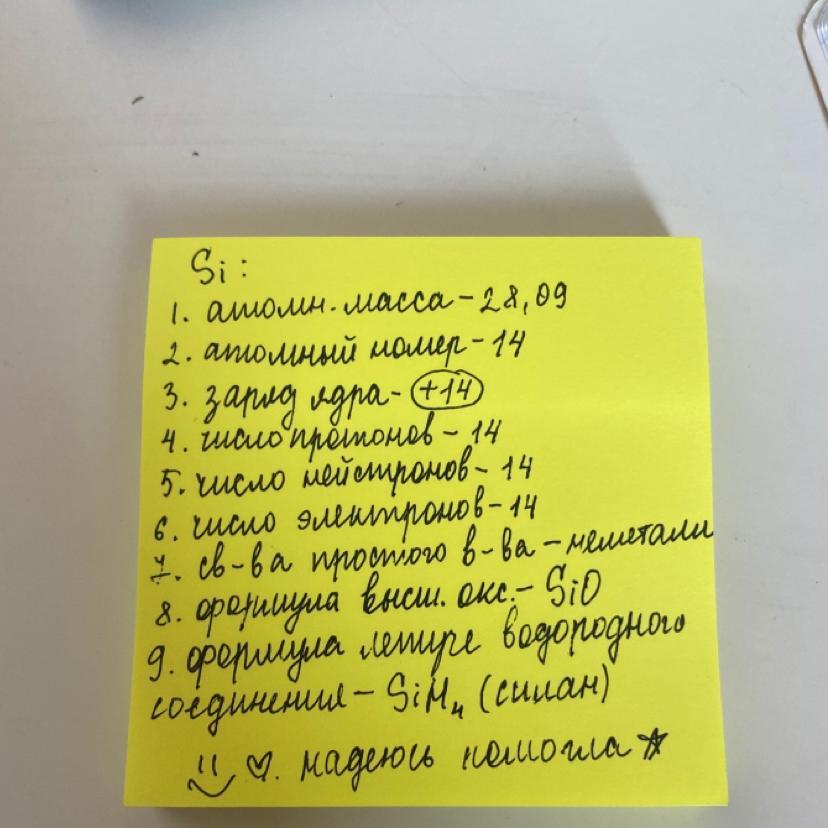 Si:
1. атомн. масса - 28,09
2. атомный номер - 14
3. заряд ядра - +14
4. число протонов - 14
5. число нейтронов - 14
6. число электронов - 14
7. св-ва простого в-ва - неметалл
8. формула высш. окс. - SiO
9. формула летуче водородного
соединения - SiH₄ (силан)
надеюсь помогла